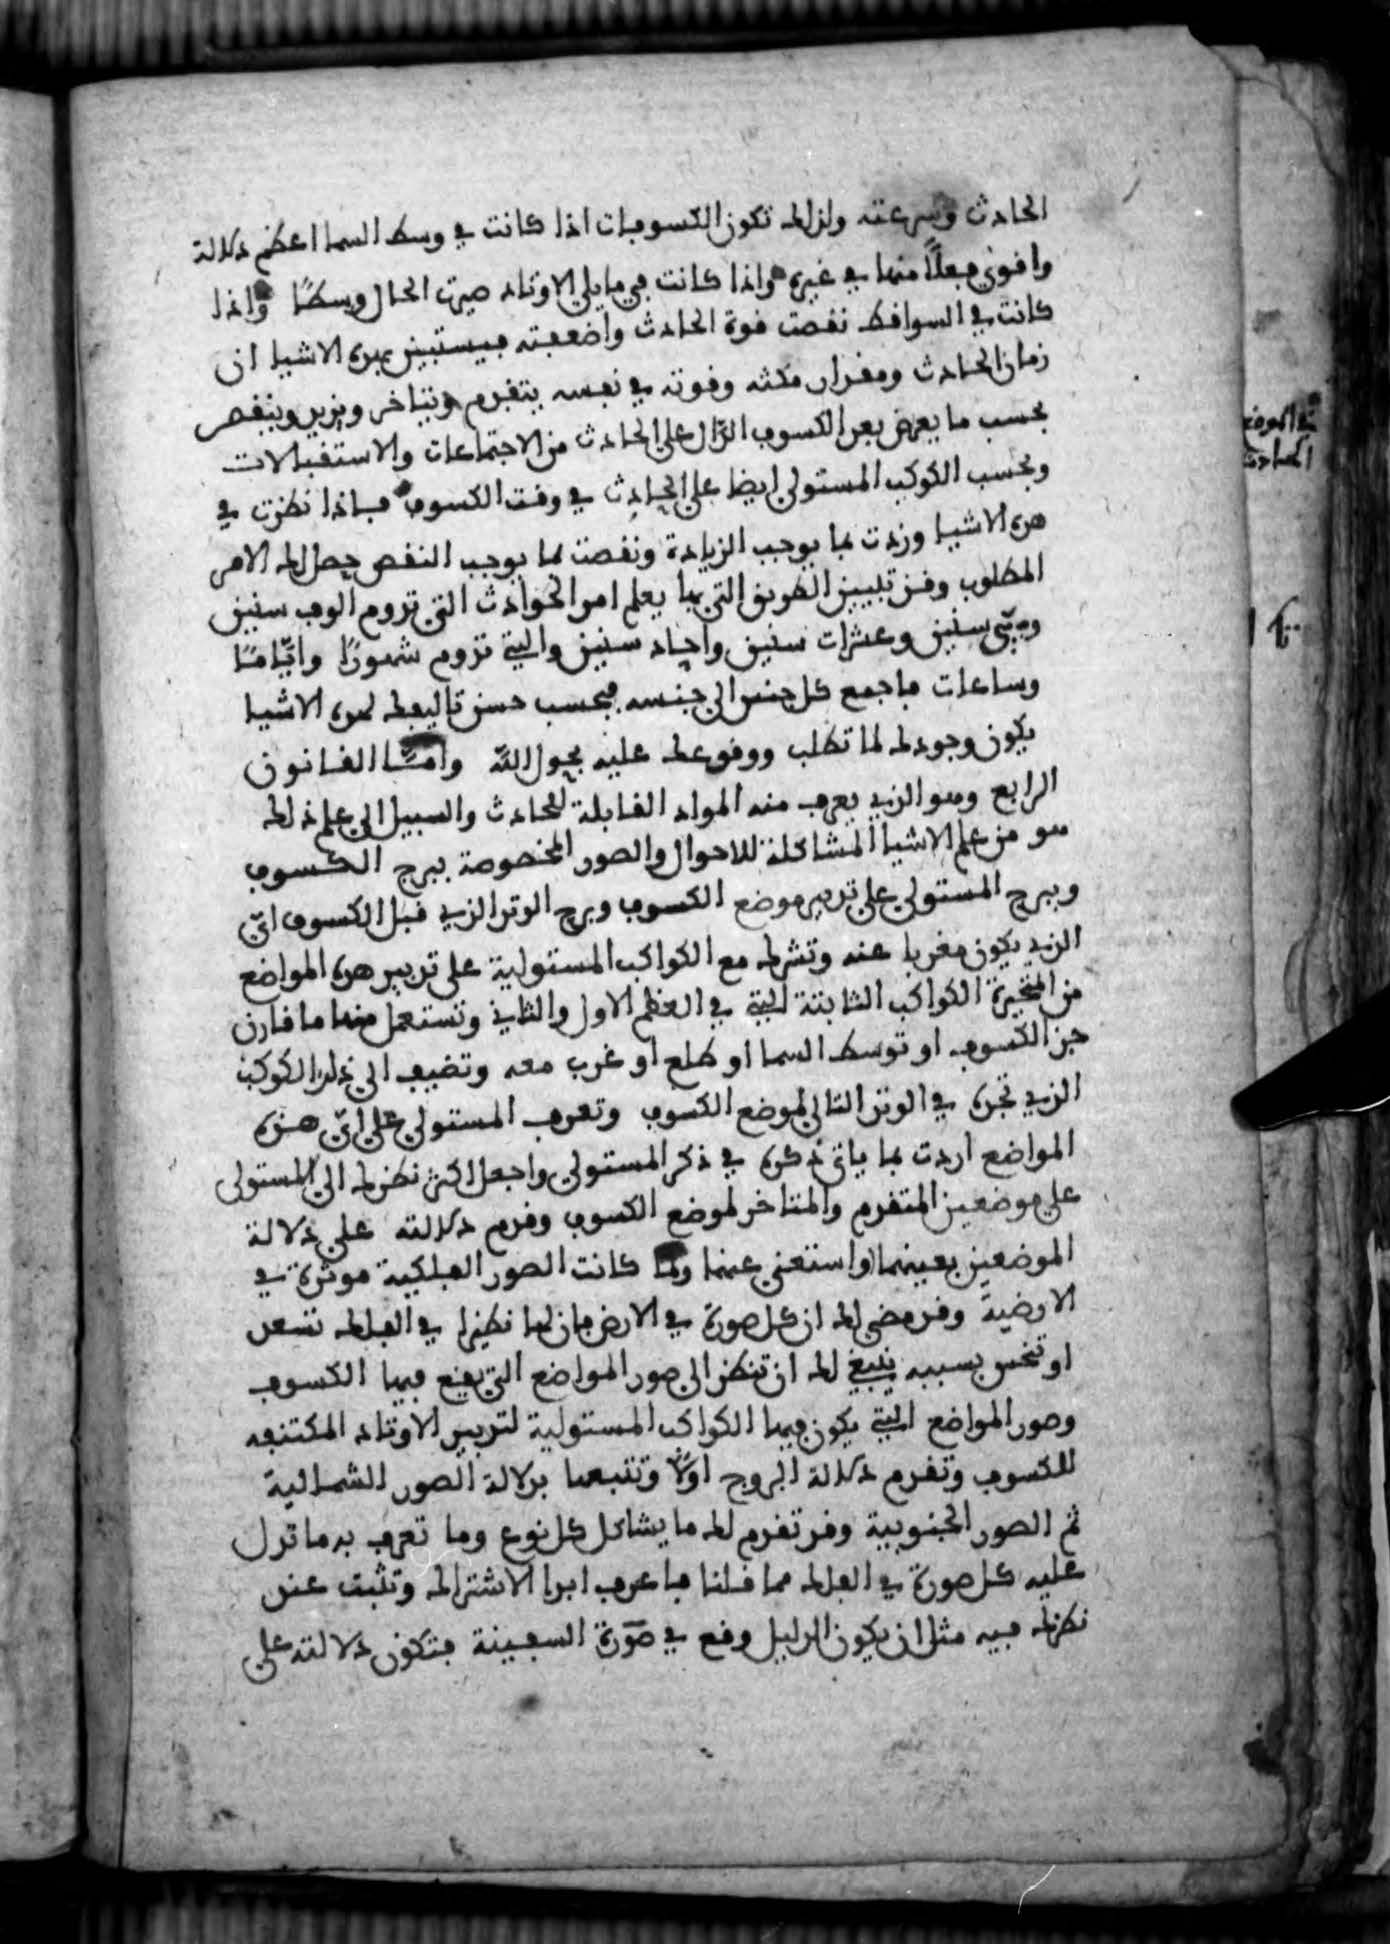 الحادث وسرعته ولذلك تكون الكسوفات اذا كانت في وسط السما اعظم دلالة
واقوى فعلًا منها في غيره واذا كانت في ما يلي الاوتاد صيرت الحال وسطًا واذا
كانت في السواقط نقصت قوة الحادث واضعفته فيستبين بهذه الاشيا ان
زمان الحادث ومقدار مكثه وقوته في نفسه يتقدم ويتاخر ويزيد وينقص
بحسب ما يعرض بعد الكسوف الدّال على الحادث من الاجتماعات والاستقبالات
وبحسب الكوكب المستولي ايضا على الحادث في وقت الكسوف فاذا نظرت في
هذه الاشيا وزدت بما يوجب الزيادة ونقصت بما يوجب النقص حصل لك الامر
المطلوب وقد تبيين الطريق التي بها يعلم امر الحوادث التي تدوم الوف سنين
وميّى سنين وعشرات سنين واحاد سنين والتي تدوم شهورًا وايّامًا
وساعات فاجمع كل جنس الى جنسه فبحسب حسن تاليفك لهذه الاشيا
يكون وجودك لما تطلب ووقوعك عليه بحول اللّه وامّا القانون
الرابع وهو الذي يعرف منه المواد القابلة للحادث والسبيل الى علم ذلك
هو من علم الاشيا المشاكلة للاحوال والصور المخصوصة ببرج الكسوف
وببرج المستولي على تدبير موضع الكسوف وبرج الوتد الذي قبل الكسوف ايّ
الذي يكون مغربا عنه وتشرك مع الكواكب المستولية على تدبير هذه المواضع
من المتحيرة الكواكب الثابتة التي في العظم الاول والثاني وتستعمل منها ما قارن
جزء الكسوف او توسط السما او طلع او غرب معه وتضيف الى ذلك الكوكب
الذي تجده في الوتد التالي لموضع الكسوف وتعرف المستولي على ايّ هذه
المواضع اردت بما ياتي ذكره في ذكر المستولي واجعل اكثر نظرك الى المستولى
على موضعين المتقدم والمتاخر لموضع الكسوف وقدم دلالته على دلالة
الموضعين بعينهما واستغني عنهما ولما كانت الصور الفلكية موثرة في
الارضية وقد مضى لك ان كل صورة في الارض فان لها نظيرا في الفلك تسعد
او تنحس بسببه ينبغي لك ان تنظر الى صور المواضع التي يقع فيها الكسوف
وصور المواضع التي يكون فيها الكواكب المستولية لتدبير الاوتاد المكتنفه
للكسوف وتقدم دلالة البروج اوّلًا وتتبعها بدلالة الصور الشمالية
ثم الصور الجنوبية وقد تقدم لك ما يشاكل كل نوع وما تعرف به ما تدل
عليه كل صورة في الفلك مما قلنا فاعرف ابدا الاشتراك وتثبت عند
نظرك فيه مثل ان يكون الدليل وقع في صورة السفينة فتكون دلالته على